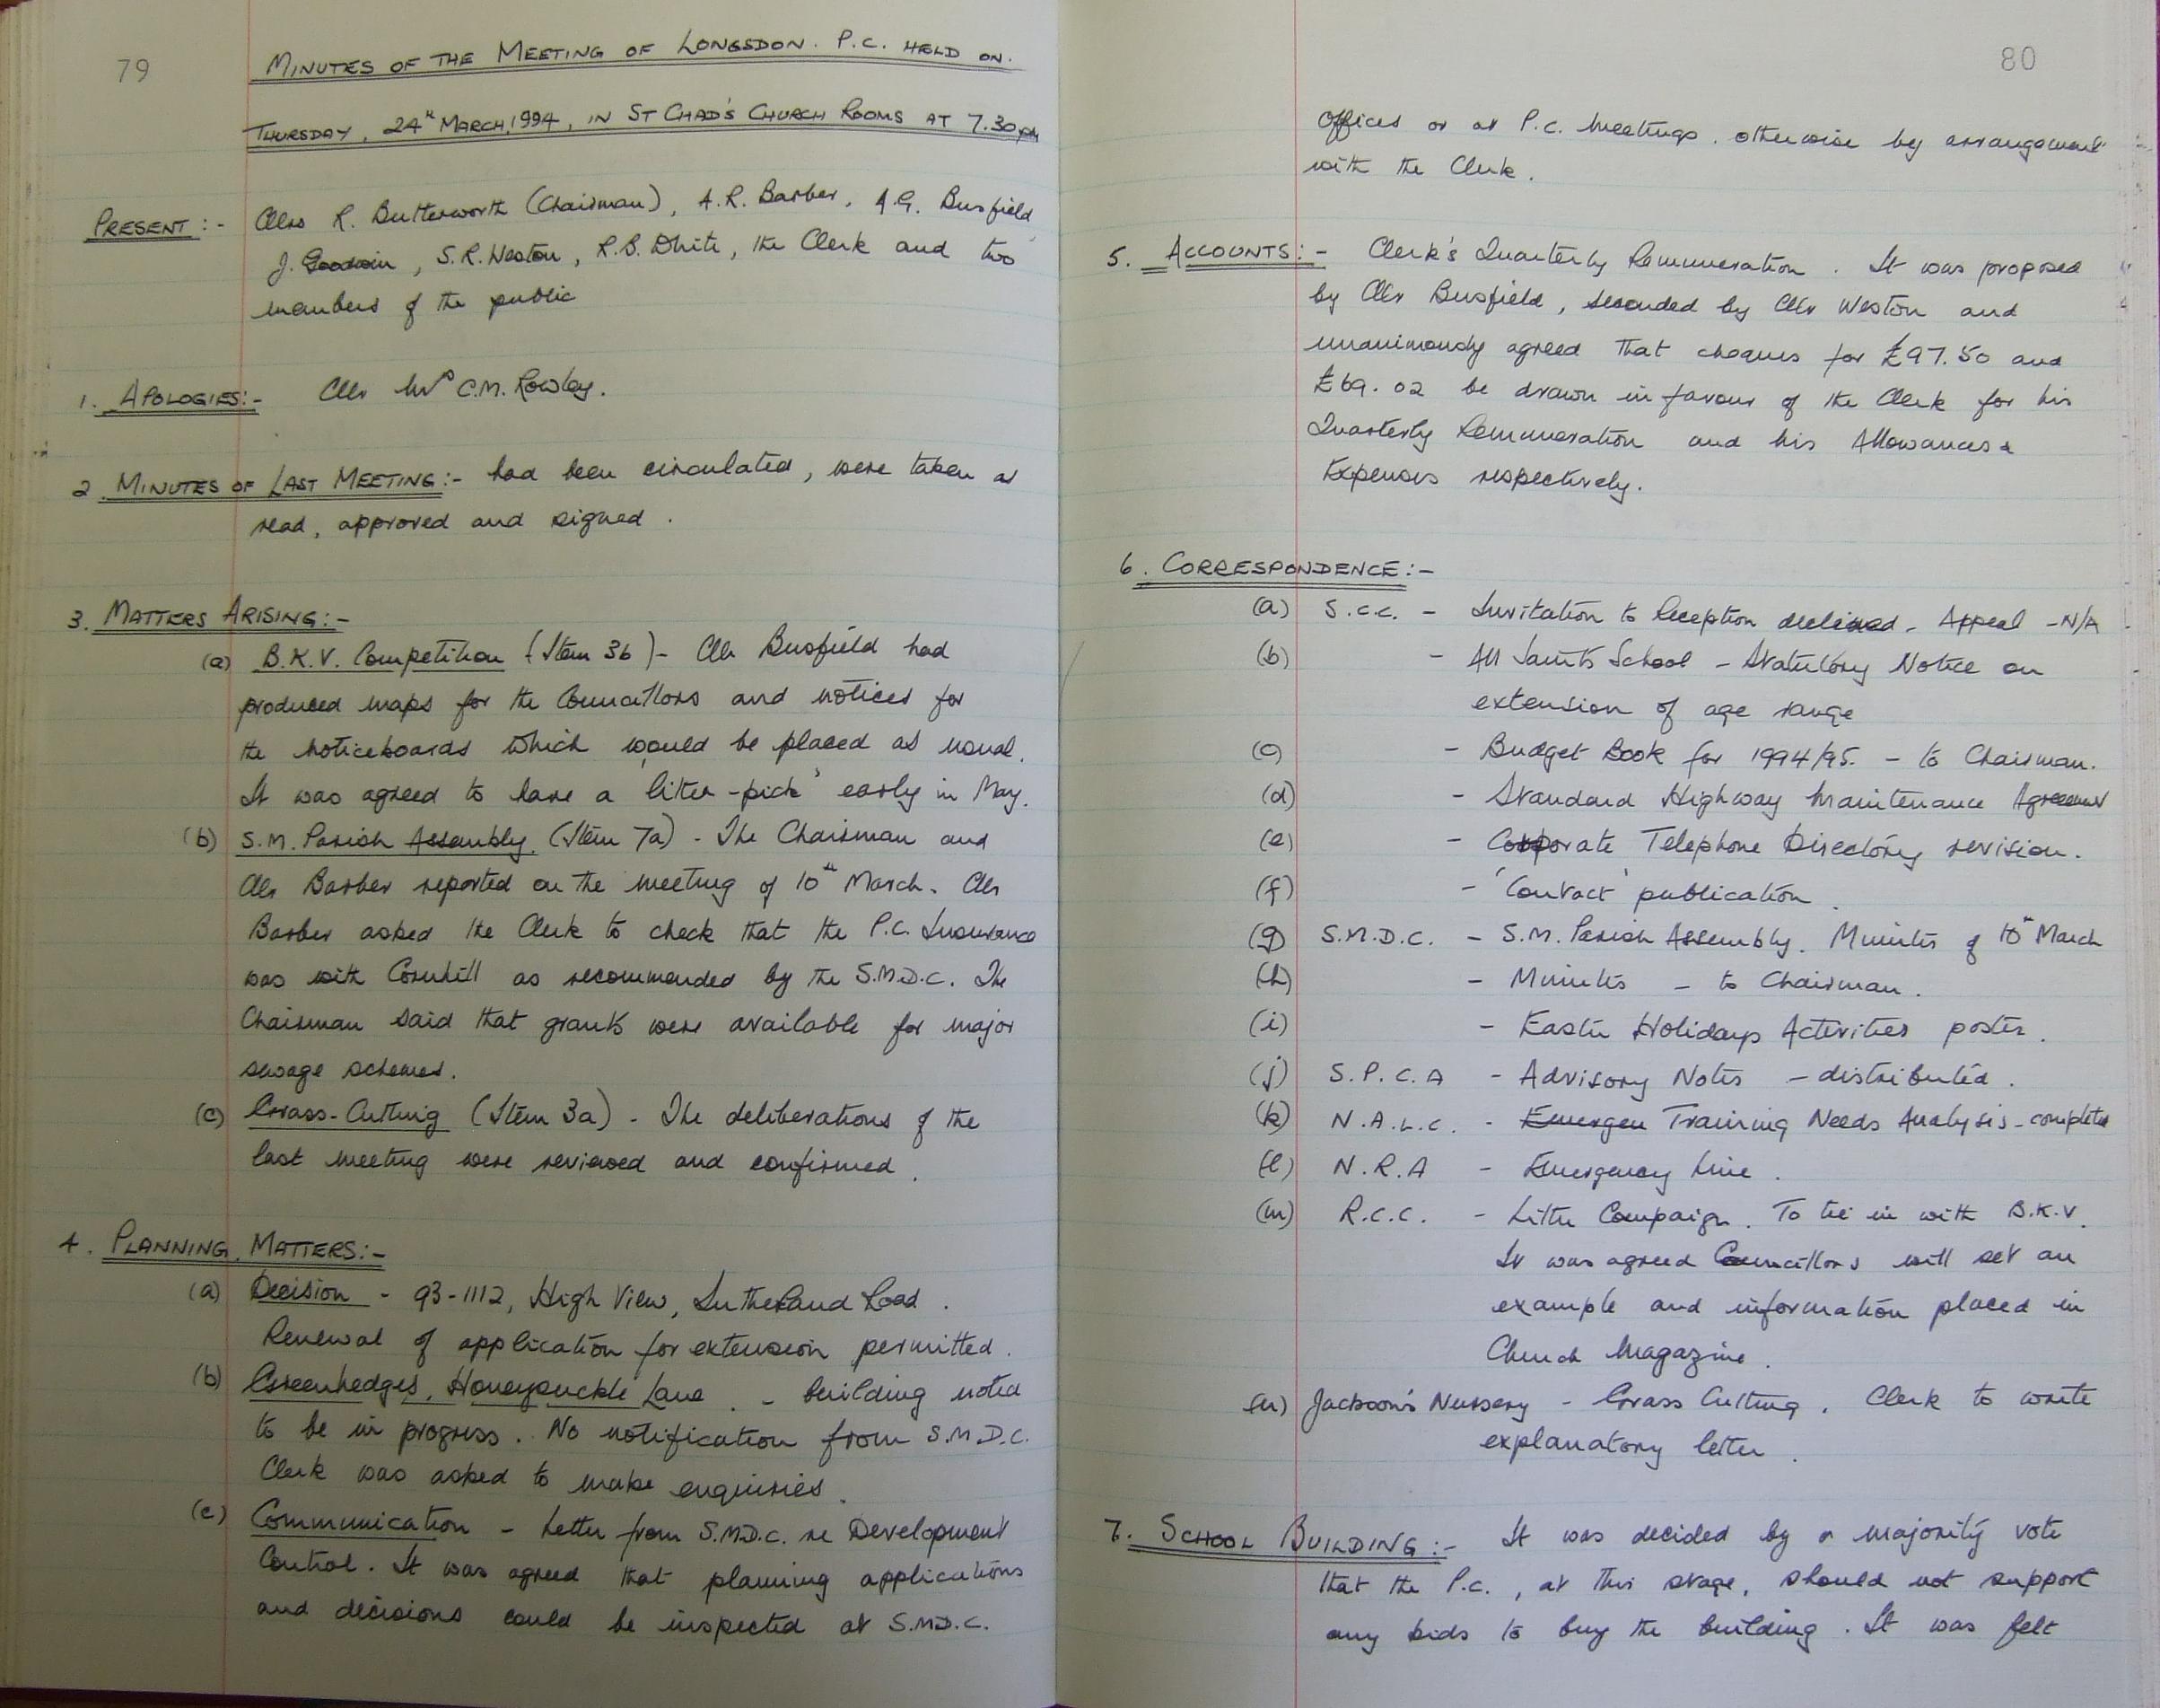 79
MINUTES OF THE MEETING OF LONGSDON. P.C. HELD ON.
THURSDAY, 24th MARCH, 1994, IN ST CHAD'S CHURCH ROOMS AT 7.30pm
PRESENT :- Cllrs R. Butterworth (Chairman), A.R. Barber, A.G. Busfield
J. Goodwin, S.R. Weston, R.B. White, the Clerk and two
members of the public
1. APOLOGIES:- Cllr Mrs C.M. Rowley.
2. MINUTES OF LAST MEETING:- had been circulated, were taken as
read, approved and signed.
3. MATTERS ARISING:-
(a) B.K.V. Competition (Item 3b) - Cllr Busfield had
produced maps for the Councillors and notices for
the noticeboards which would be placed as usual.
It was agreed to have a 'litter-pick' early in May.
(b) S.M. Parish Assembly (Item 7a) - The Chairman and
Cllr Barber reported on the meeting of 10th March. Cllr
Barber asked the Clerk to check that the P.C. Insurance
was with Cornhill as recommended by the S.M.D.C. The
Chairman said that grants were available for major
sewage schemes.
(c) Grass-Cutting (Item 3a) - The deliberations of the
last meeting were reviewed and confirmed.
4. PLANNING MATTERS:-
(a) Decision - 93-1112, High View, Sutherland Road.
Renewal of application for extension permitted.
(b) Greenhedges, Honeysuckle Lane. - building noted
to be in progress. No notification from S.M.D.C.
Clerk was asked to make enquiries.
(c) Communication - Letter from S.M.D.C. re Development
Control. It was agreed that planning applications
and decisions could be inspected at S.M.D.C.
80
offices or at P.C. meetings. otherwise by arrangement
with the Clerk.
5. ACCOUNTS:- Clerk's Quarterly Remuneration. It was proposed
by Cllr Busfield, seconded by Cllr Weston and
unanimously agreed that cheques for £97.50 and
£69.02 be drawn in favour of the Clerk for his
Quarterly Remuneration and his Allowances &
Expenses respectively.
6. CORRESPONDENCE:-
(a) S.C.C. - Invitation to Reception declined - Appeal - N/A
(b) - All Saints School - Statutory Notice on
extension of age range
(c) - Budget Book for 1994/95. - to Chairman.
(d) - Standard Highway Maintenance Agreement
(e) - Corporate Telephone Directory revision.
(f) - 'Contact' publication.
(g) S.M.D.C. - S.M. Parish Assembly. Minutes of 10th March
(h) - Minutes - to Chairman.
(i) - Easter Holidays Activities poster.
(j) S.P.C.A - Advisory Notes - distributed.
(k) N.A.L.C. - Emergen Training Needs Analysis - completed
(l) N.R.A - Emergency Line.
(m) R.C.C. - Litter Campaign. To tie in with B.K.V.
It was agreed Councillors will set an
example and information placed in
Church Magazine.
(n) Jackson's Nursery - Grass Cutting. Clerk to write
explanatory letter.
7. SCHOOL BUILDING:- It was decided by a majority vote
that the P.C., at this stage, should not support
any bids to buy the building. It was felt